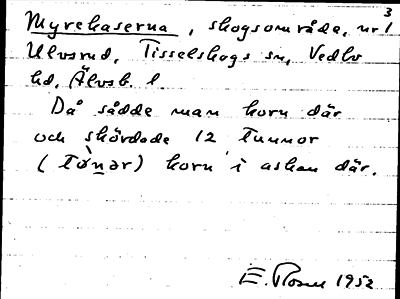 3
Myrekaserna, skogsområde, nr 1
Ulvsrud, Tisselskogs sn, Vedbo
hd, Älvsb. l.
Då sådde man korn där
och skördade 12 tunnor
(tò̱nər) korn i askan där.
E. 1952